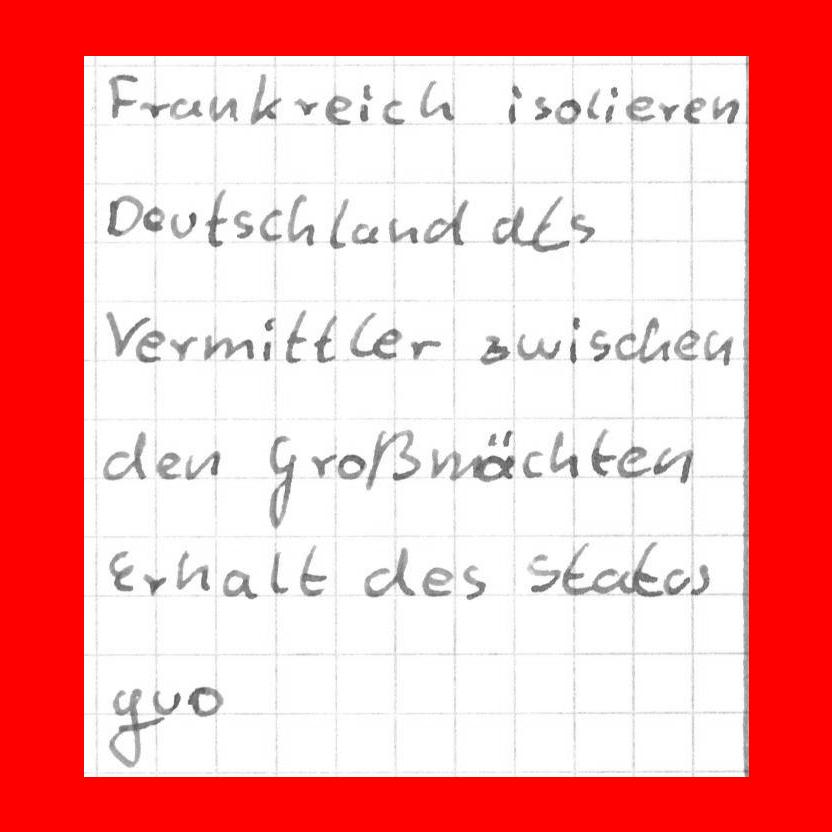 Frankreich isolieren
Deutschland als
Vermittler zwischen
den Großmächten
Erhalt des status
quo